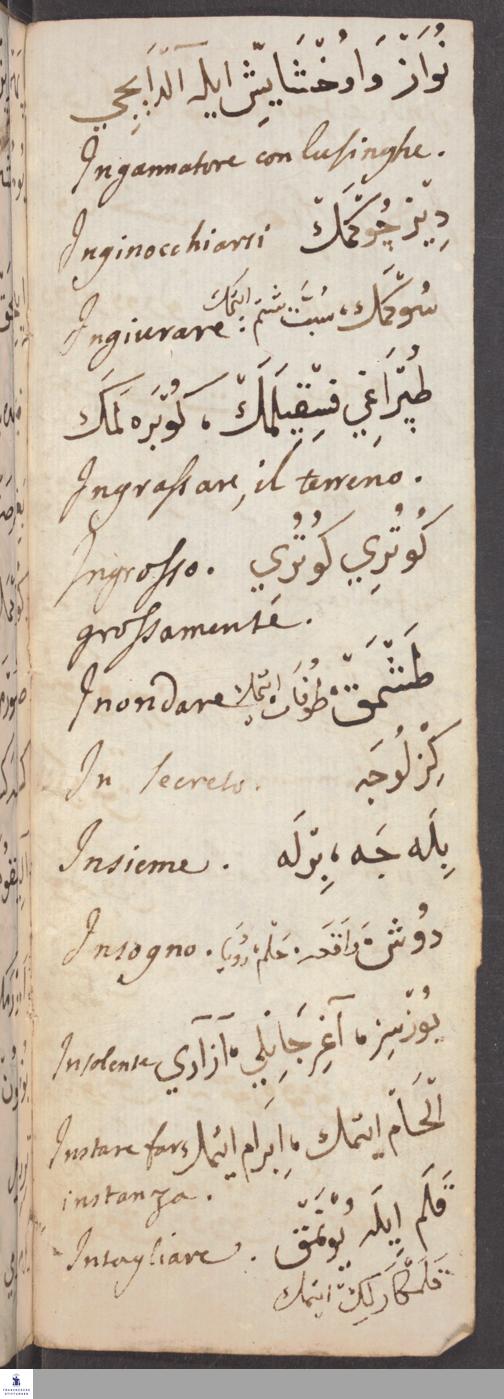 نُوَازْ وَاوُخْشَايِشْ ايله آلْدَايِجِي
Ingannatore con lusinghe.
Inginocchiarsi دِيزْ چُوكْمَكْ
Ingiurare: سُوكْمَك، سَبّْ، شَتْم ايتمك
طُپْرَاغِي سْقِيلَمَكْ، كُوبْرَه لَمَك
Ingrassare, il terreno.
Ingrosso. كُوتُرِي كُوتُرِي
grossamente.
Inondare طَاشْمَقْ، طُوفَان ايتمك
In secreto. كِزْلُوجَه
Insieme. بِلَه جَه، بِرْلَه
Insogno. دُوش، وَاقِعَه، حُلْم، رُويَا
Insolente يُوزْسِزْ، آغِرْ جَانِلِي، آزَارِي
Instare fare اِلْحَاحْ ايتمك، اِبْرَام ايتمك
instanza.
Intagliare. قَلَم اِيلَه يُونْتْمَقْ
قَلَمْكَارْلِكْ ايتمك